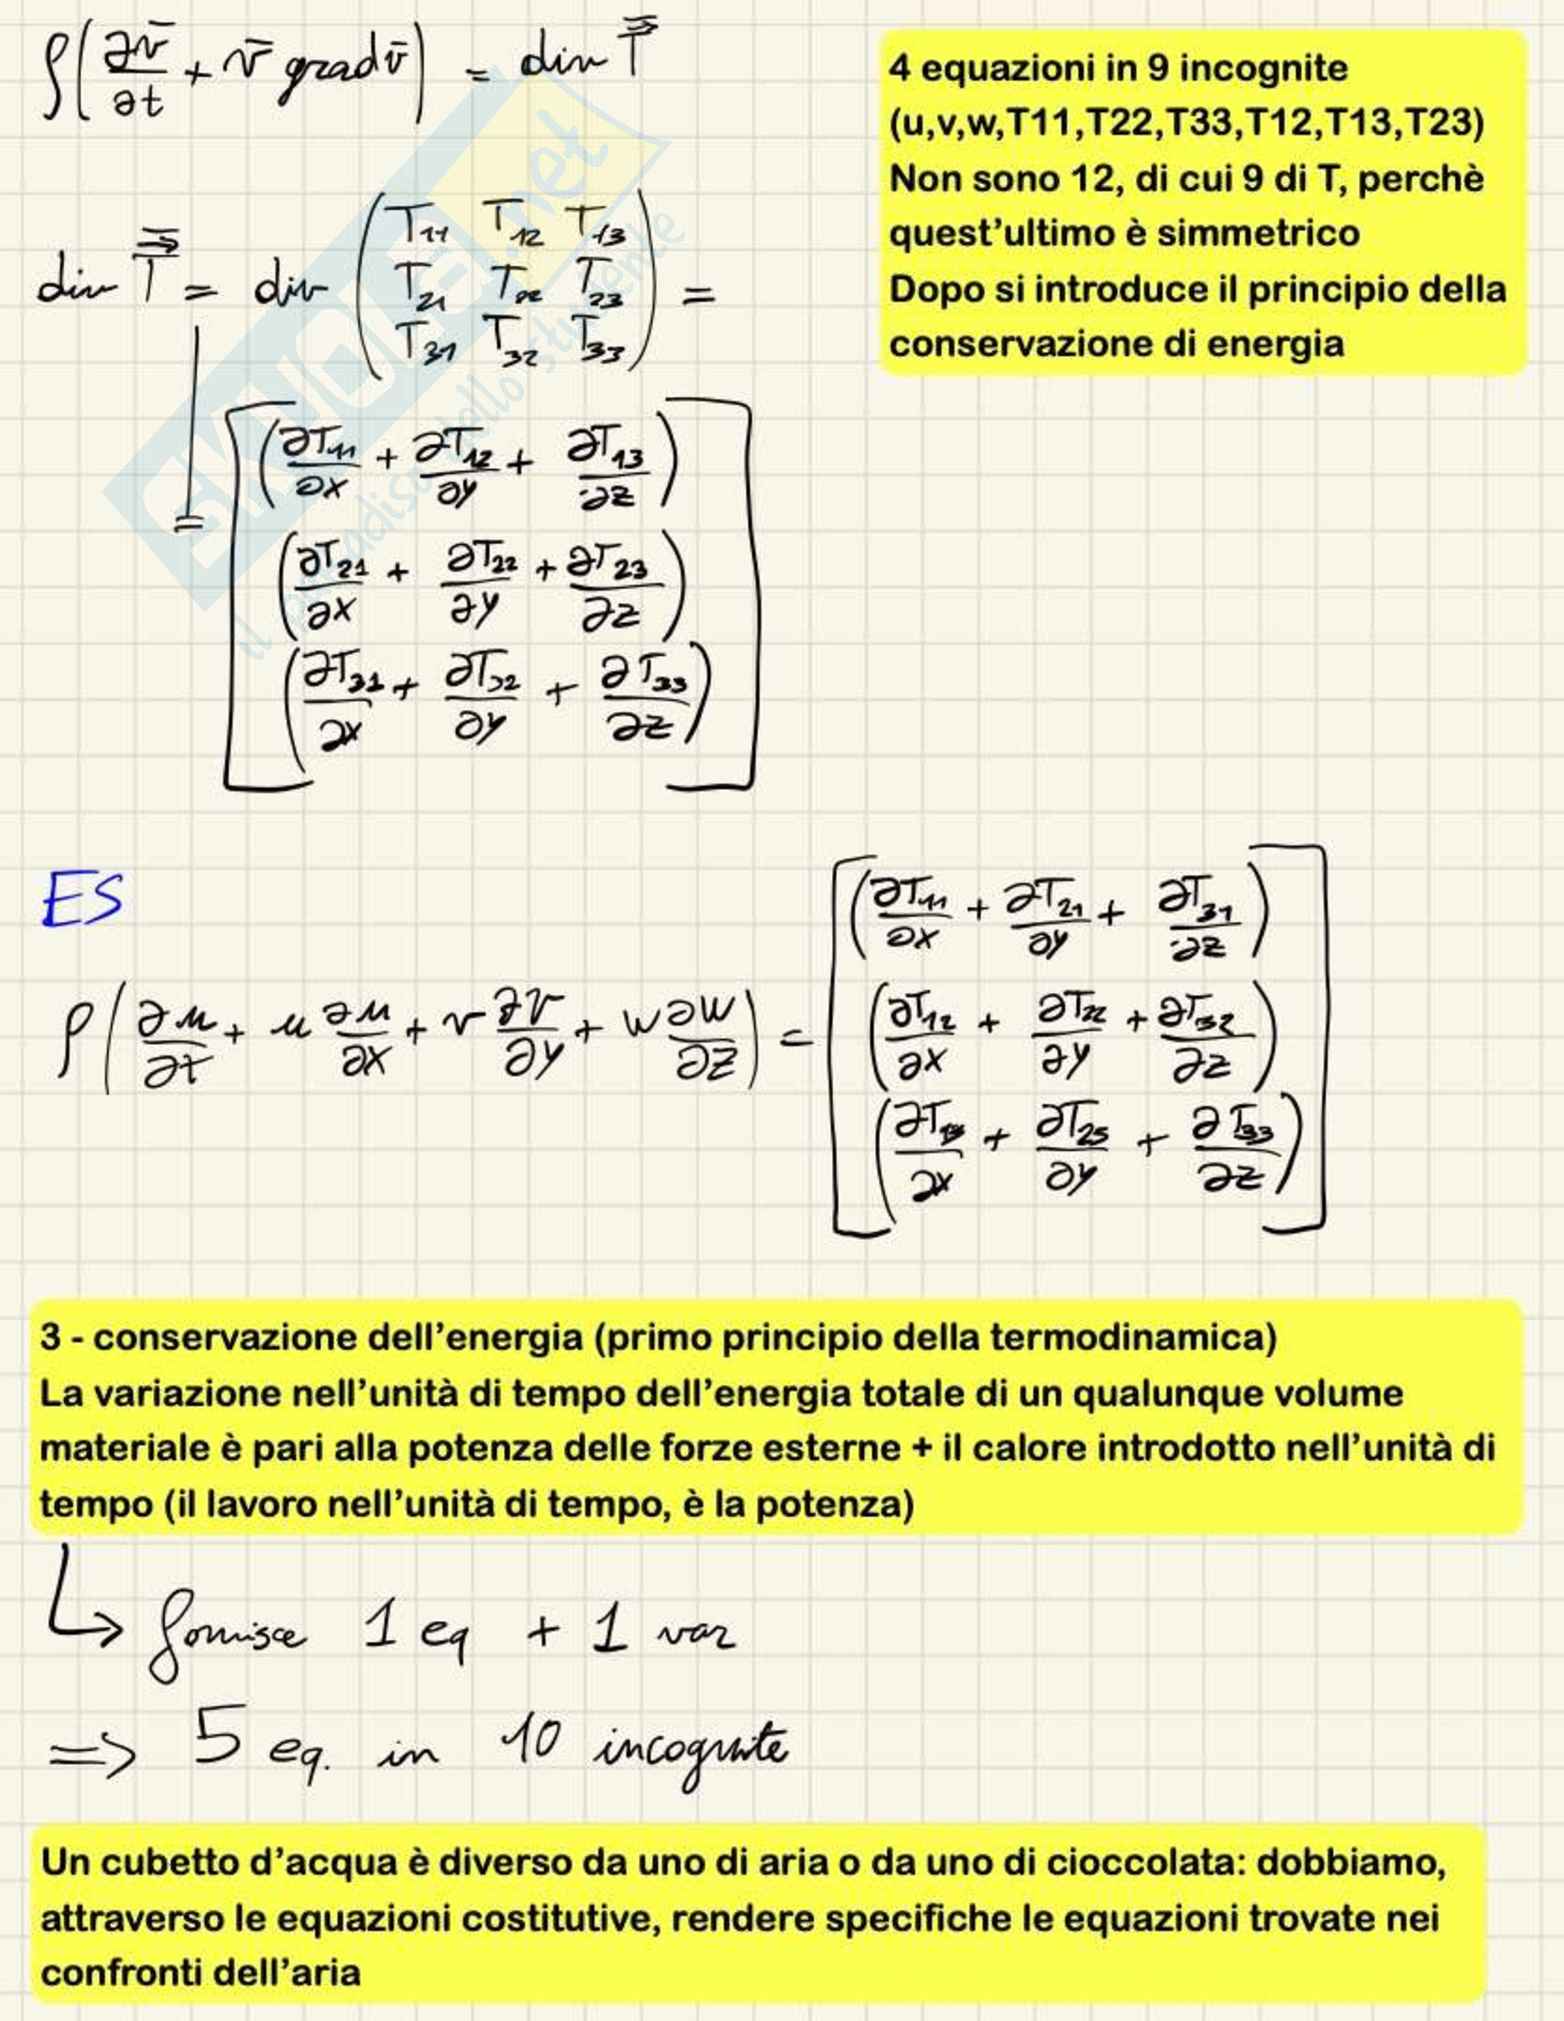 ρ(∂v̄/∂t + v̄ grad v̄) = div T̿
4 equazioni in 9 incognite
(u,v,w,T11,T22,T33,T12,T13,T23)
Non sono 12, di cui 9 di T, perchè
quest'ultimo è simmetrico
Dopo si introduce il principio della
conservazione di energia
div T̿ = div (T₁₁ T₁₂ T₁₃
T₂₁ T₂₂ T₂₃
T₃₁ T₃₂ T₃₃) =
= [(∂T₁₁/∂x + ∂T₁₂/∂y + ∂T₁₃/∂z)
(∂T₂₁/∂x + ∂T₂₂/∂y + ∂T₂₃/∂z)
(∂T₃₁/∂x + ∂T₃₂/∂y + ∂T₃₃/∂z)]
SKUOLA.net
il paradiso dello studente
ES
ρ(∂u/∂t + u ∂u/∂x + v ∂v/∂y + w ∂w/∂z) = [(∂T₁₁/∂x + ∂T₂₁/∂y + ∂T₃₁/∂z)
(∂T₁₂/∂x + ∂T₂₂/∂y + ∂T₃₂/∂z)
(∂T₁₃/∂x + ∂T₂₃/∂y + ∂T₃₃/∂z)]
3 - conservazione dell'energia (primo principio della termodinamica)
La variazione nell'unità di tempo dell'energia totale di un qualunque volume
materiale è pari alla potenza delle forze esterne + il calore introdotto nell'unità di
tempo (il lavoro nell'unità di tempo, è la potenza)
↳ fornisce 1 eq + 1 var
=> 5 eq. in 10 incognite
Un cubetto d'acqua è diverso da uno di aria o da uno di cioccolata: dobbiamo,
attraverso le equazioni costitutive, rendere specifiche le equazioni trovate nei
confronti dell'aria